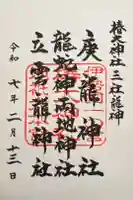 椿大神社三社龍神
庚龍神社
龍蛇神両地神社
立雲龍神社
令和七年二月十三日